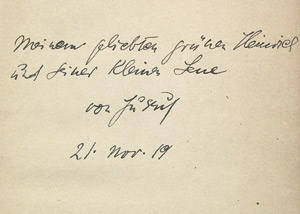 Meinem geliebten grünen Heinrich
und seiner kleinen Lene
von Jussuf
21. Nov. 19